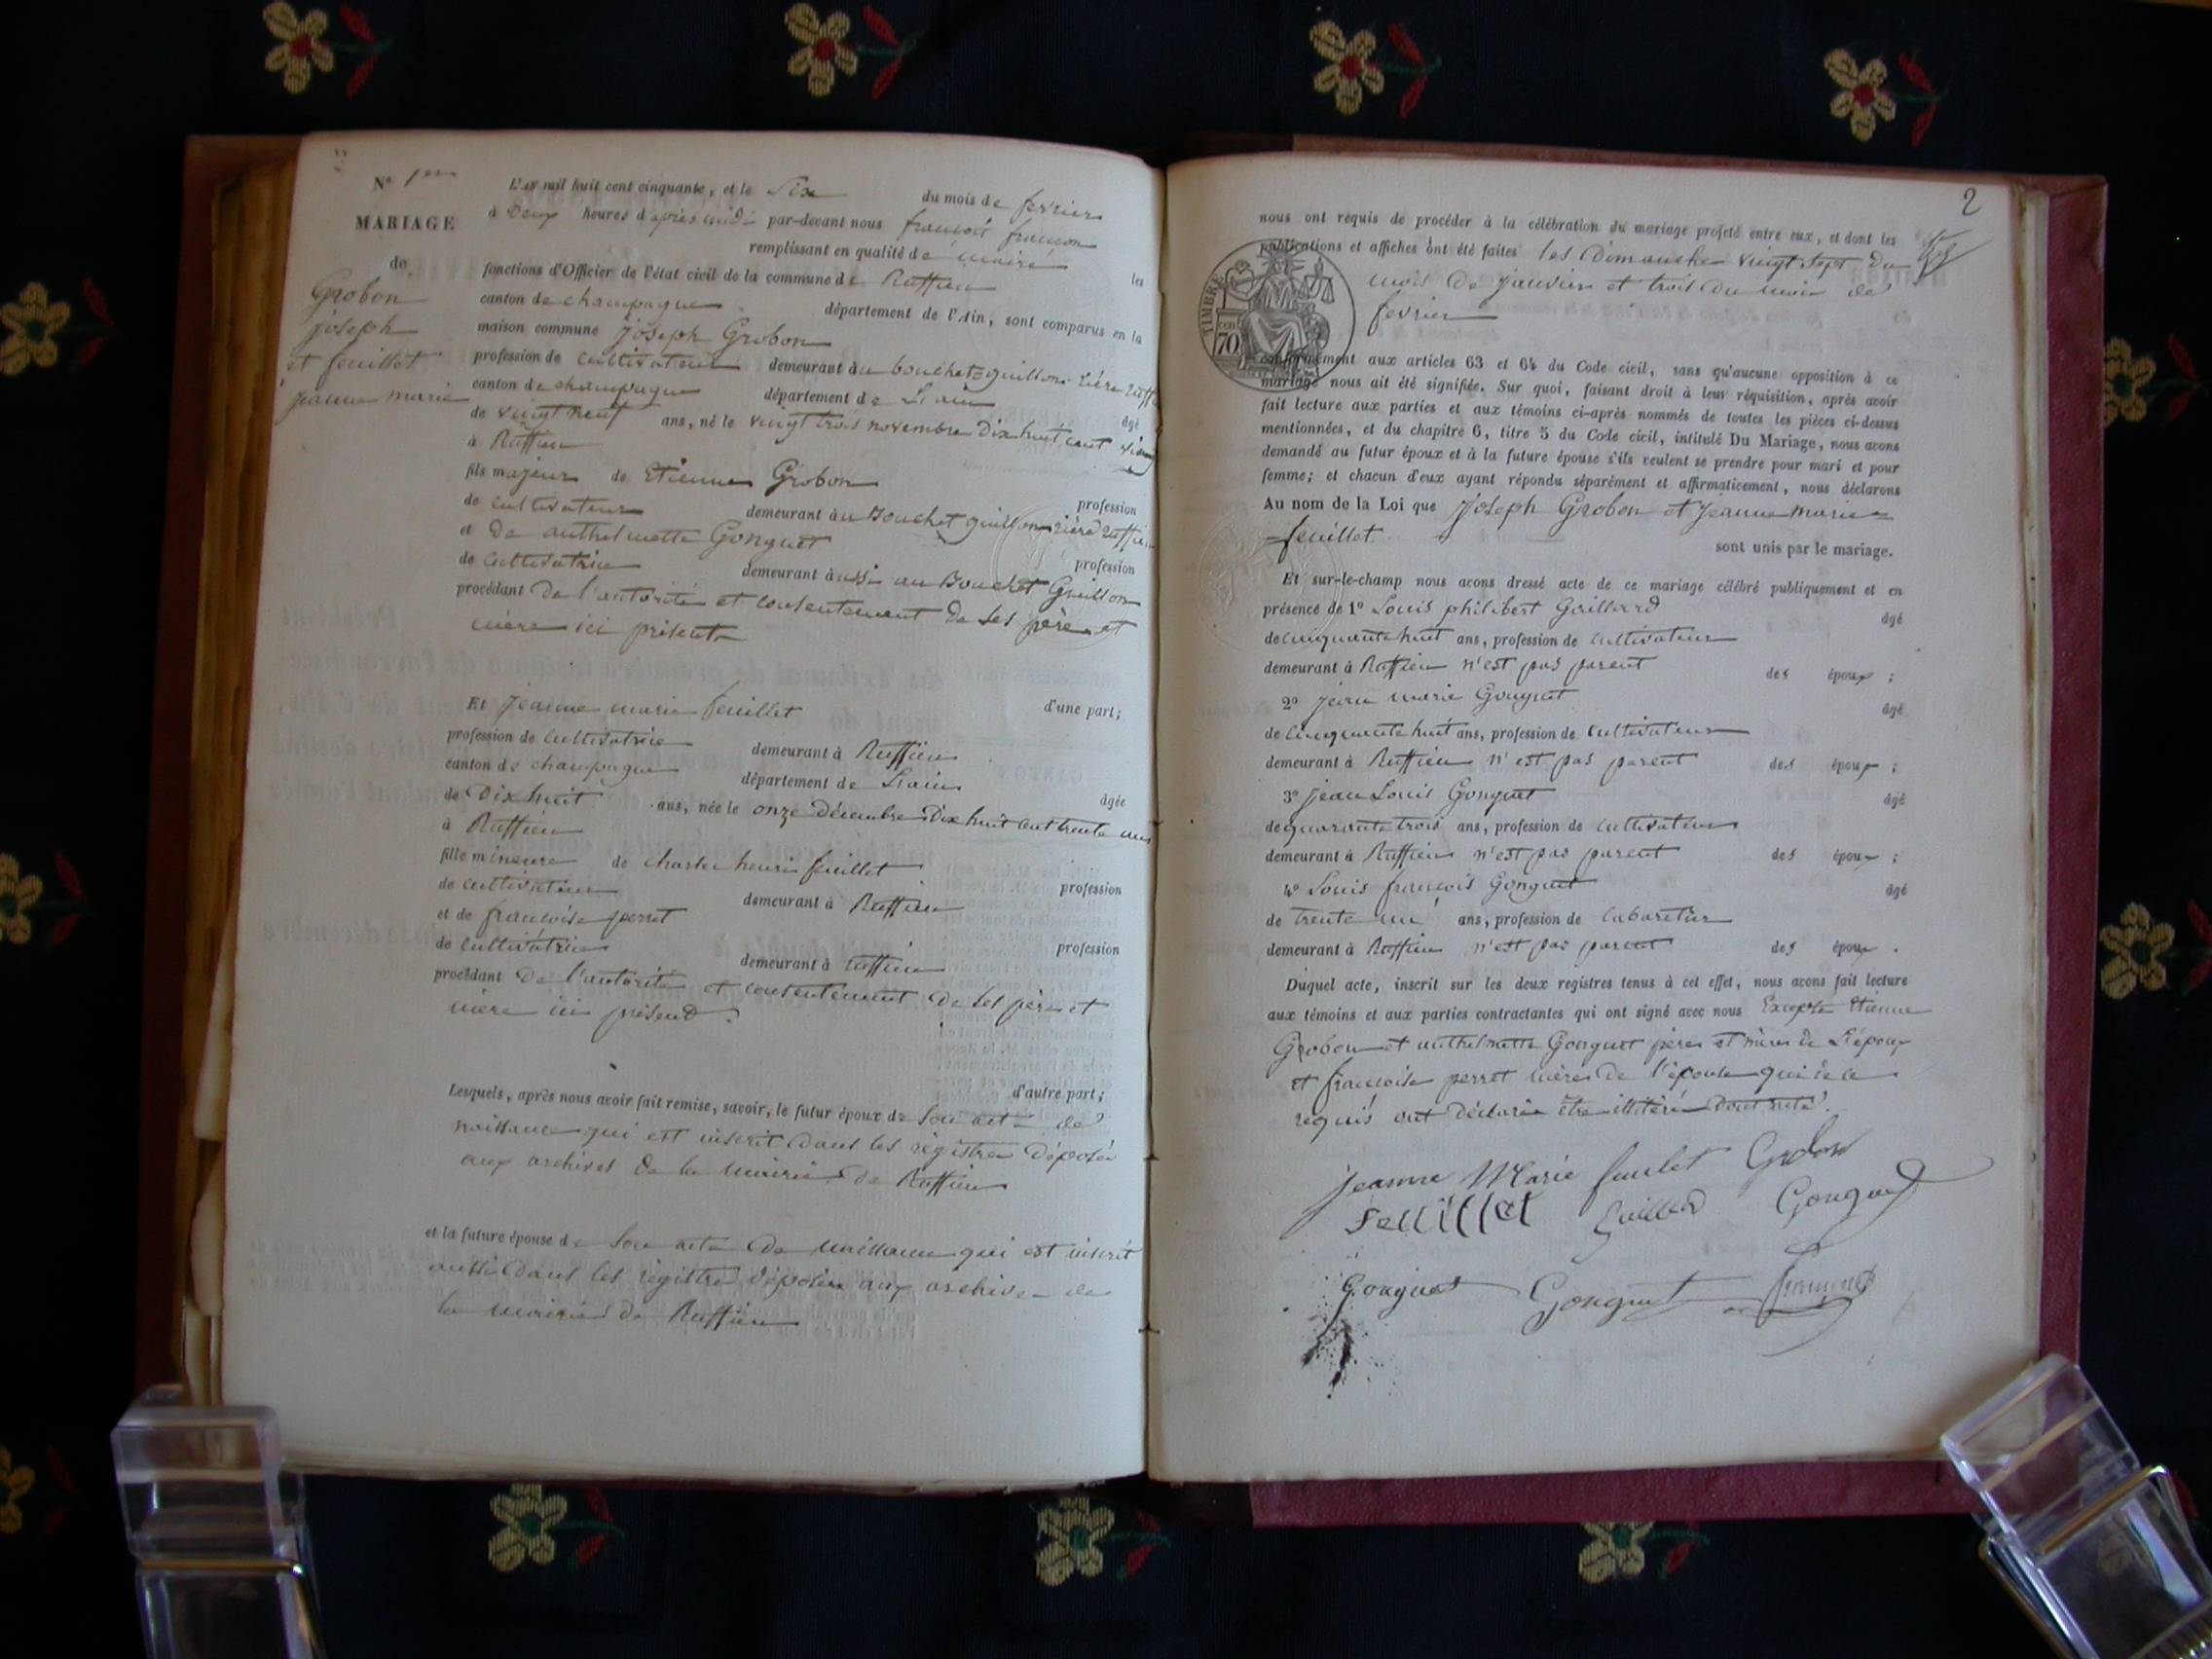 N° 1er
MARIAGE
de
Grobon
joseph
et feuillet
jeanne marie
L'an mil huit cent cinquante, et le Six du mois de fevrier
à Deux heures d'après midi par-devant nous françois
remplissant en qualité de maire les
fonctions d'Officier de l'état civil de la commune de Ruffieu
canton de champagne département de l'Ain, sont comparus en la
maison commune joseph Grobon
profession de cultivateur demeurant au bouchet=guillon rière Ruffieu
canton de champagne département de L'ain âgé
de vingt neuf ans, né le vingt trois novembre Dix huit cent vingt
à Ruffieu
fils majeur de Etienne Grobon profession
de cultivateur demeurant au Bouchet guillon rière Ruffieu
et de anthelmette Gonguet profession
de cultivatrice demeurant aussi au Bouchet Guillon
procédant De l'autorité et consentement De ses père et
mère ici présents
d'une part;
Et jeanne marie feuillet
profession de cultivatrice demeurant à Ruffieu
canton de champagne département de L'ain âgée
de Dix huit ans, née le onze Décembre Dix huit cent trente un
à Ruffieu
fille mineure de charles henri feuillet profession
de cultivateur demeurant à Ruffieu
et de françoise perret profession
de cultivatrice demeurant à Ruffieu
procédant De l'autorité et consentement De ses père et
mère ici présents.
d'autre part;
Lesquels, après nous avoir fait remise, savoir, le futur époux de Son acte de
naissance qui est inscrit Dans les régistres Déposés
aux archives De la mairie De Ruffieu
et la future épouse de Son acte De naissance qui est inscrit
aussi Dans les régistres Déposés aux archives de
la mairie De Ruffieu
2
nous ont requis de procéder à la célébration du mariage projeté entre eux, et dont les
publications et affiches ont été faites les Dimanches vingt sept Du
mois De janvier et trois Du mois de
fevrier
TIMBRE
70
conformément aux articles 63 et 64 du Code civil, sans qu'aucune opposition à ce
mariage nous ait été signifiée. Sur quoi, faisant droit à leur réquisition, après avoir
fait lecture aux parties et aux témoins ci-après nommés de toutes les pièces ci-dessus
mentionnées, et du chapitre 6, titre 5 du Code civil, intitulé Du Mariage, nous avons
demandé au futur époux et à la future épouse s'ils veulent se prendre pour mari et pour
femme; et chacun d'eux ayant répondu séparément et affirmativement, nous déclarons
Au nom de la Loi que joseph Grobon et jeanne marie=
=feuillet sont unis par le mariage.
Et sur-le-champ nous avons dressé acte de ce mariage célébré publiquement et en
présence de 1° Louis philibert Guillard âgé
de cinquante huit ans, profession de cultivateur
demeurant à Ruffieu n'est pas parent des époux ;
2° jean marie Gonguet âgé
de cinquante huit ans, profession de cultivateur
demeurant à Ruffieu n'est pas parent des époux ;
3° jean Louis Gonguet âgé
de quarante trois ans, profession de cultivateur
demeurant à Ruffieu n'est pas parent des époux ;
4° Louis françois Gonguet âgé
de trente un ans, profession de cabaretier
demeurant à Ruffieu n'est pas parent des époux .
Duquel acte, inscrit sur les deux registres tenus à cet effet, nous avons fait lecture
aux témoins et aux parties contractantes qui ont signé avec nous Excepté Etienne
Grobon et anthelmette Gonguet père et mère De L'époux
et françoise perret mère De l'épouse qui de ce
requis ont Déclaré être illitérés Dont acte.
jeanne Marie feuilet Grobon
Feuillet Guillard Gonguet
Gonguet Gonguet